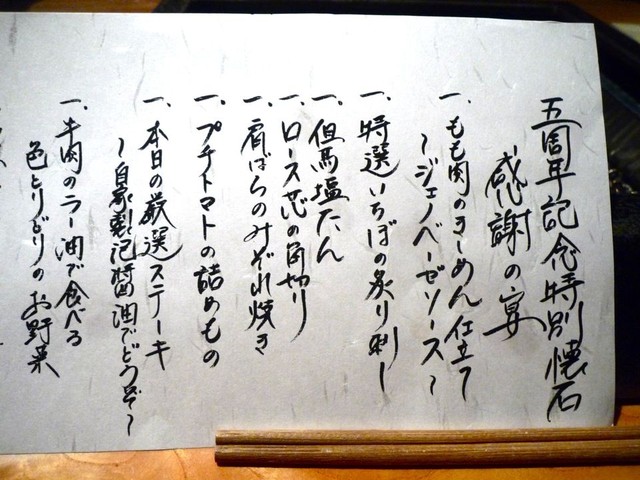 五周年記念特別懐石
感謝の宴
一、もも肉のきしめん仕立て
〜ジェノベーゼソース〜
一、特選いちぼの炙り刺し
一、但馬塩たん
一、ロース芯の角切り
一、肩ばらのみぞれ焼き
一、プチトマトの詰めもの
一、本日の厳選ステーキ
〜自家製記醬油でどうぞ〜
一、牛肉のラー油で食べる
色とりどりのお野菜